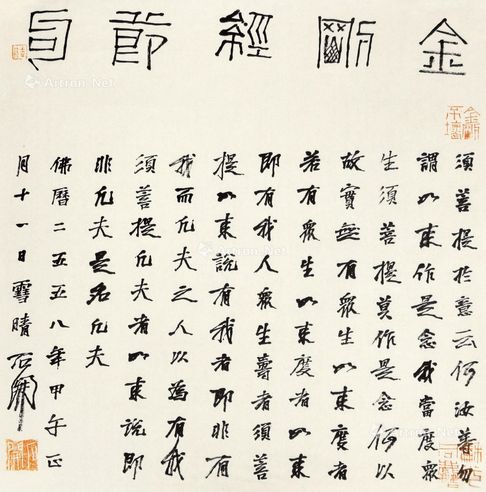 金剛經節
須菩提於意云何汝等勿
謂如來作是念我當度眾
生須菩提莫作是念何以
故實無有眾生如來度者
若有眾生如來度者如來
即有我人眾生壽者須菩
提如來說有我者即非有
我而凡夫之人以為有我
須菩提凡夫者如來說即
非凡夫是名凡夫
佛曆二五五八年甲午正
月十一日雪晴石開
金剛不壞
Artron.Net